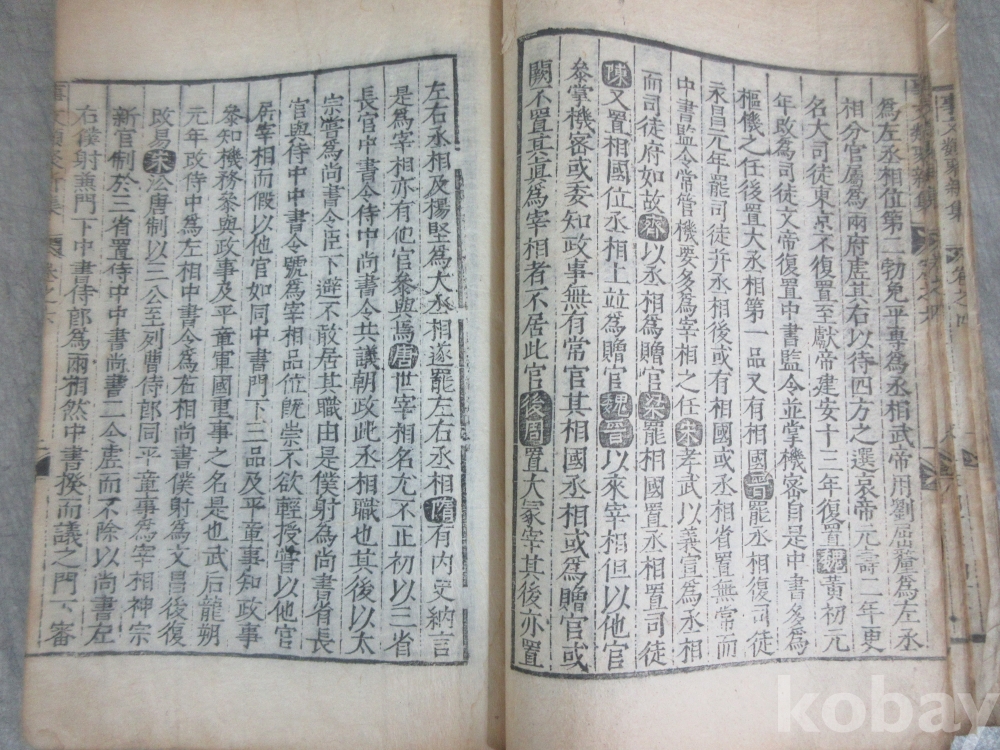 爲左丞相位第二勃免平專爲丞相武帝用劉屈釐爲左丞
相分官屬爲兩府虛其右以待四方之選哀帝元壽二年更
名大司徒東京不復置至獻帝建安十三年復置魏黃初元
年改爲司徒文帝復置中書監令並掌機密自是中書多爲
樞機之任後置大丞相第一品又有相國晉罷丞相復司徒
永昌元年罷司徒并丞相後或有相國或丞相省置無常而
中書監令常管機要多爲宰相之任宋孝武以義宣爲丞相
而司徒府如故齊以丞相爲贈官梁罷相國置丞相置司徒
陳又置相國位丞相上並爲贈官魏晉以來宰相但以他官
叅掌機密或委知政事無有常官其相國丞相或爲贈官或
闕不置其眞爲宰相者不居此官後周置大冢宰其後亦置
左右丞相及楊堅爲大丞相遂罷左右丞相隋有內史納言
是爲宰相亦有他官叅與焉唐世宰相名尤不正初以三省
長官中書令侍中尚書令共議朝政此丞相職也其後以太
宗嘗爲尚書令臣下避不敢居其職由是僕射爲尚書省長
官與侍中中書令號爲宰相品位旣崇不欲輕授嘗以他官
居宰相而假以他官如同中書門下三品及平章事知政事
叅知機務叅與政事及平章軍國重事之名是也武后龍朔
元年改侍中爲左相中書令爲右相尚書僕射爲文昌後復
改易宋㳂唐制以三公至列曹侍郎同平章事爲宰相神宗
新官制於三省置侍中中書尚書二令虛而不除以尚書左
右僕射兼門下中書侍郎爲兩相然中書揆而議之門下審
kobay